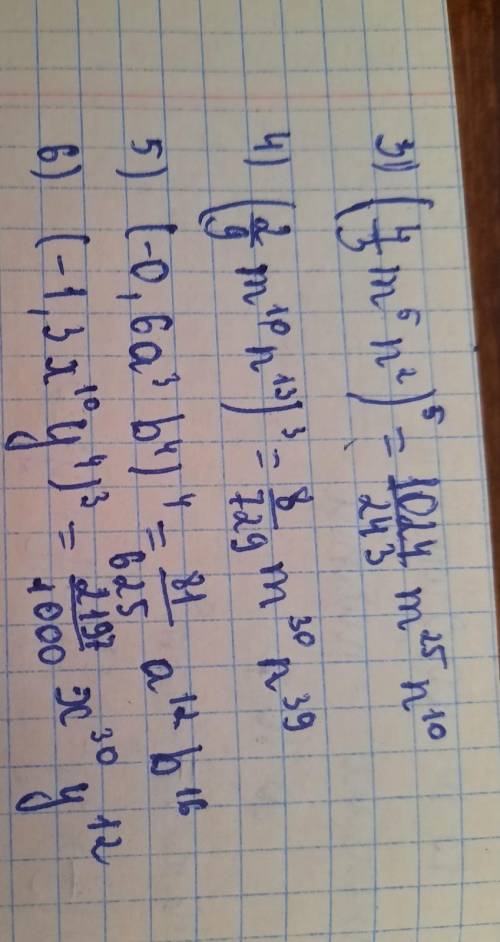 3) (4/3 m⁵ n²)⁵ = 1024/243 m²⁵ n¹⁰
4) (2/9 m¹⁰ n¹³)³ = 8/729 m³⁰ n³⁹
5) (-0,6a³ b⁴)⁴ = 81/625 a¹² b¹⁶
6) (-1,3x¹⁰ y⁴)³ = 2197/1000 x³⁰ y¹²